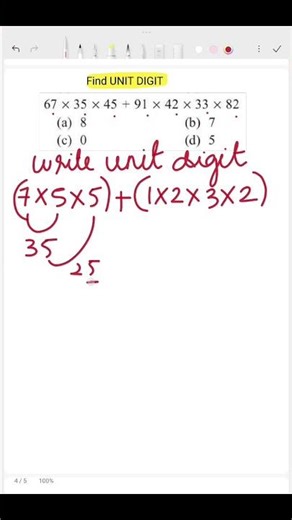 Find UNIT DIGIT
67 × 35 × 45 + 91 × 42 × 33 × 82
(a) 8 (b) 7
(c) 0 (d) 5
write unit digit
(7×5×5)+(1×2×3×2)
35
25
4 / 5 100%